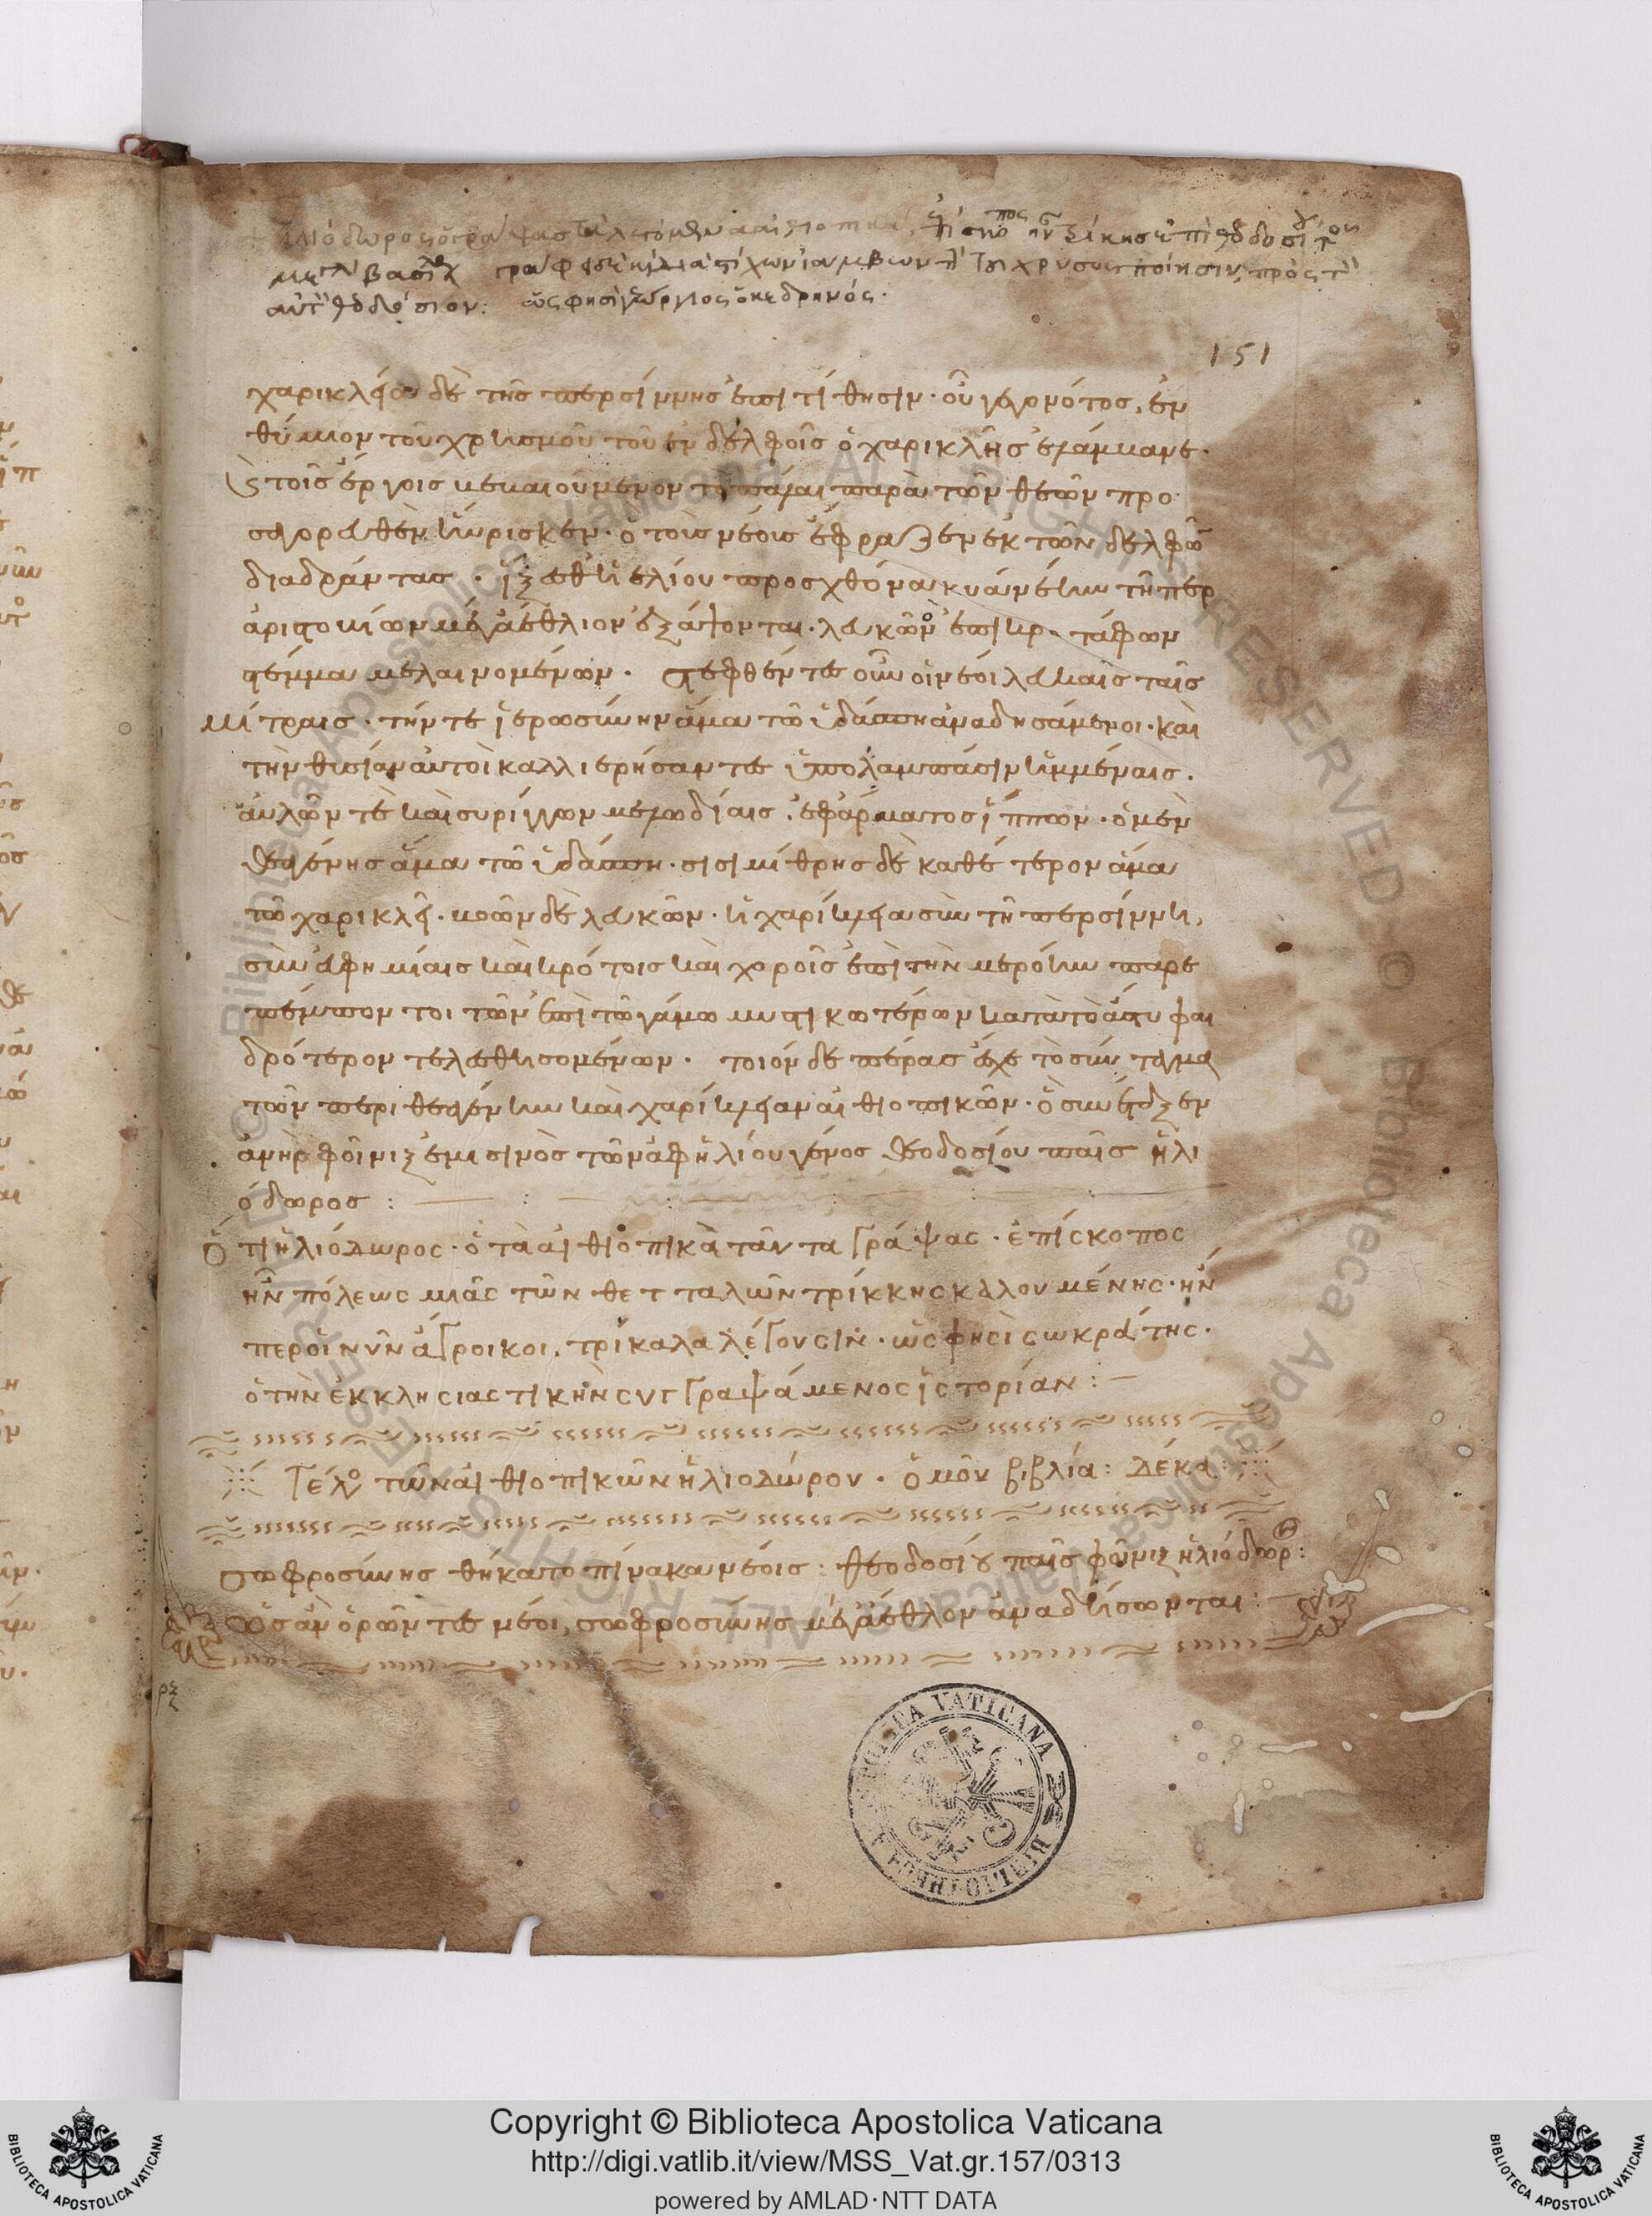 Ἡλιόδωρος ὁ γράψας τὰ λεγόμενα αἰθιοπικὰ, ἐπίσκοπος ἦν Τρίκκης ἐπὶ Θεοδοσίου τοῦ
μεγάλου βασιλέως γράφει δὲ καὶ διὰ στίχων ἰάμβων τὴν τοῦ χρυσοῦ ποίησιν, πρὸς τὸν
αὐτὸν Θεοδόσιον: ὥς φησι γεώργιος ὁ κεδρηνός.
151
χαρικλείᾳ δὲ τῆς περσίννης ἐπιτίθησιν. οὗ γεγονότος, ἐν
θύμιον τοῦ χρησμοῦ τοῦ ἐν δελφοῖς ὁ χαρικλῆς ἐλάμβανε.
καὶ τοῖς ἔργοις βεβαιούμενον τὸ πάλαι παρὰ τῶν θεῶν προ
αγορευθὲν ηὕρισκεν. ὃ τοὺς νέους ἔφραζεν ἐκ τῶν δελφῶν
διαδράντας. ἵξεσθ' ἠελίου πρὸς χθόνα κυανέην τῇπερ
ἀριστοβίων μέγ' ἀέθλιον ἐξάψονται. λευκὸν ἐπὶ κροτάφων
στέμμα μελαινομένων. στεφθέντες οὖν οἱ νέοι λευκαῖς ταῖς
μίτραις. τήν τε ἱερωσύνην ἅμα τῷ ὑδάσπῃ ἀναδησάμενοι. καὶ
τὴν θυσίαν αὐτοὶ καλλιερήσαντες ὑπὸ λαμπάσιν ἡμμέναις.
αὐλῶν τε καὶ συρίγγων μελωδίαις. ἐφ' ἅρματος ἵππων. ὁ μὲν
θεαγένης ἅμα τῷ ὑδάσπῃ. σισιμίθρης δὲ καθ' ἕτερον ἅμα
τῷ χαρικλεῖ. βοῶν δὲ λευκῶν. ἡ χαρίκλεια σὺν τῇ περσίννῃ,
σὺν εὐφημίαις καὶ κρότοις καὶ χοροῖς ἐπὶ τὴν μερόην παρε
πέμποντο τῶν ἐπὶ τῷ γάμῳ μυστικωτέρων κατὰ τὸ ἄστυ φαι
δρότερον τελεσθησομένων. τοιόνδε πέρας ἔσχε τὸ σύνταγμα
τῶν περὶ θεαγένην καὶ χαρίκλειαν αἰθιοπικῶν. ὃ συνέταξεν
ἀνὴρ φοῖνιξ ἐμισηνὸς τῶν ἀφ' ἡλίου γένος θεοδοσίου παῖς ἡλι
όδωρος :
Ὅτι ἡλιόδωρος. ὁ τὰ αἰθιοπικὰ ταῦτα γράψας. ἐπίσκοπος
ἦν πόλεως μιᾶς τῶν θετταλῶν τρίκκης καλουμένης. ἥν
περ οἱ νῦν ἄγροικοι, τρίκαλα λέγουσιν. ὥς φησὶ σωκράτης.
ὁ τὴν ἐκκλησιαστικὴν συγγραψάμενος ἱστορίαν : –
Τέλος τῶν αἰθιοπικῶν ἡλιοδώρου. ὁμοῦ βιβλία: δέκα :
σωφροσύνης θήκατο πίνακα νέοις : θεοδοσίου παῖς φοῖνιξ ἡλιόδωρος :
Ὡς ἂν ὁρῶντες νέοι, σωφροσύνης μέγ' ἄεθλον ἀναδήσωνται :
BIBLIOTECA VATICANA
Copyright © Biblioteca Apostolica Vaticana
http://digi.vatlib.it/view/MSS_Vat.gr.157/0313
powered by AMLAD·NTT DATA
BIBLIOTECA APOSTOLICA VATICANA
BIBLIOTECA APOSTOLICA VATICANA